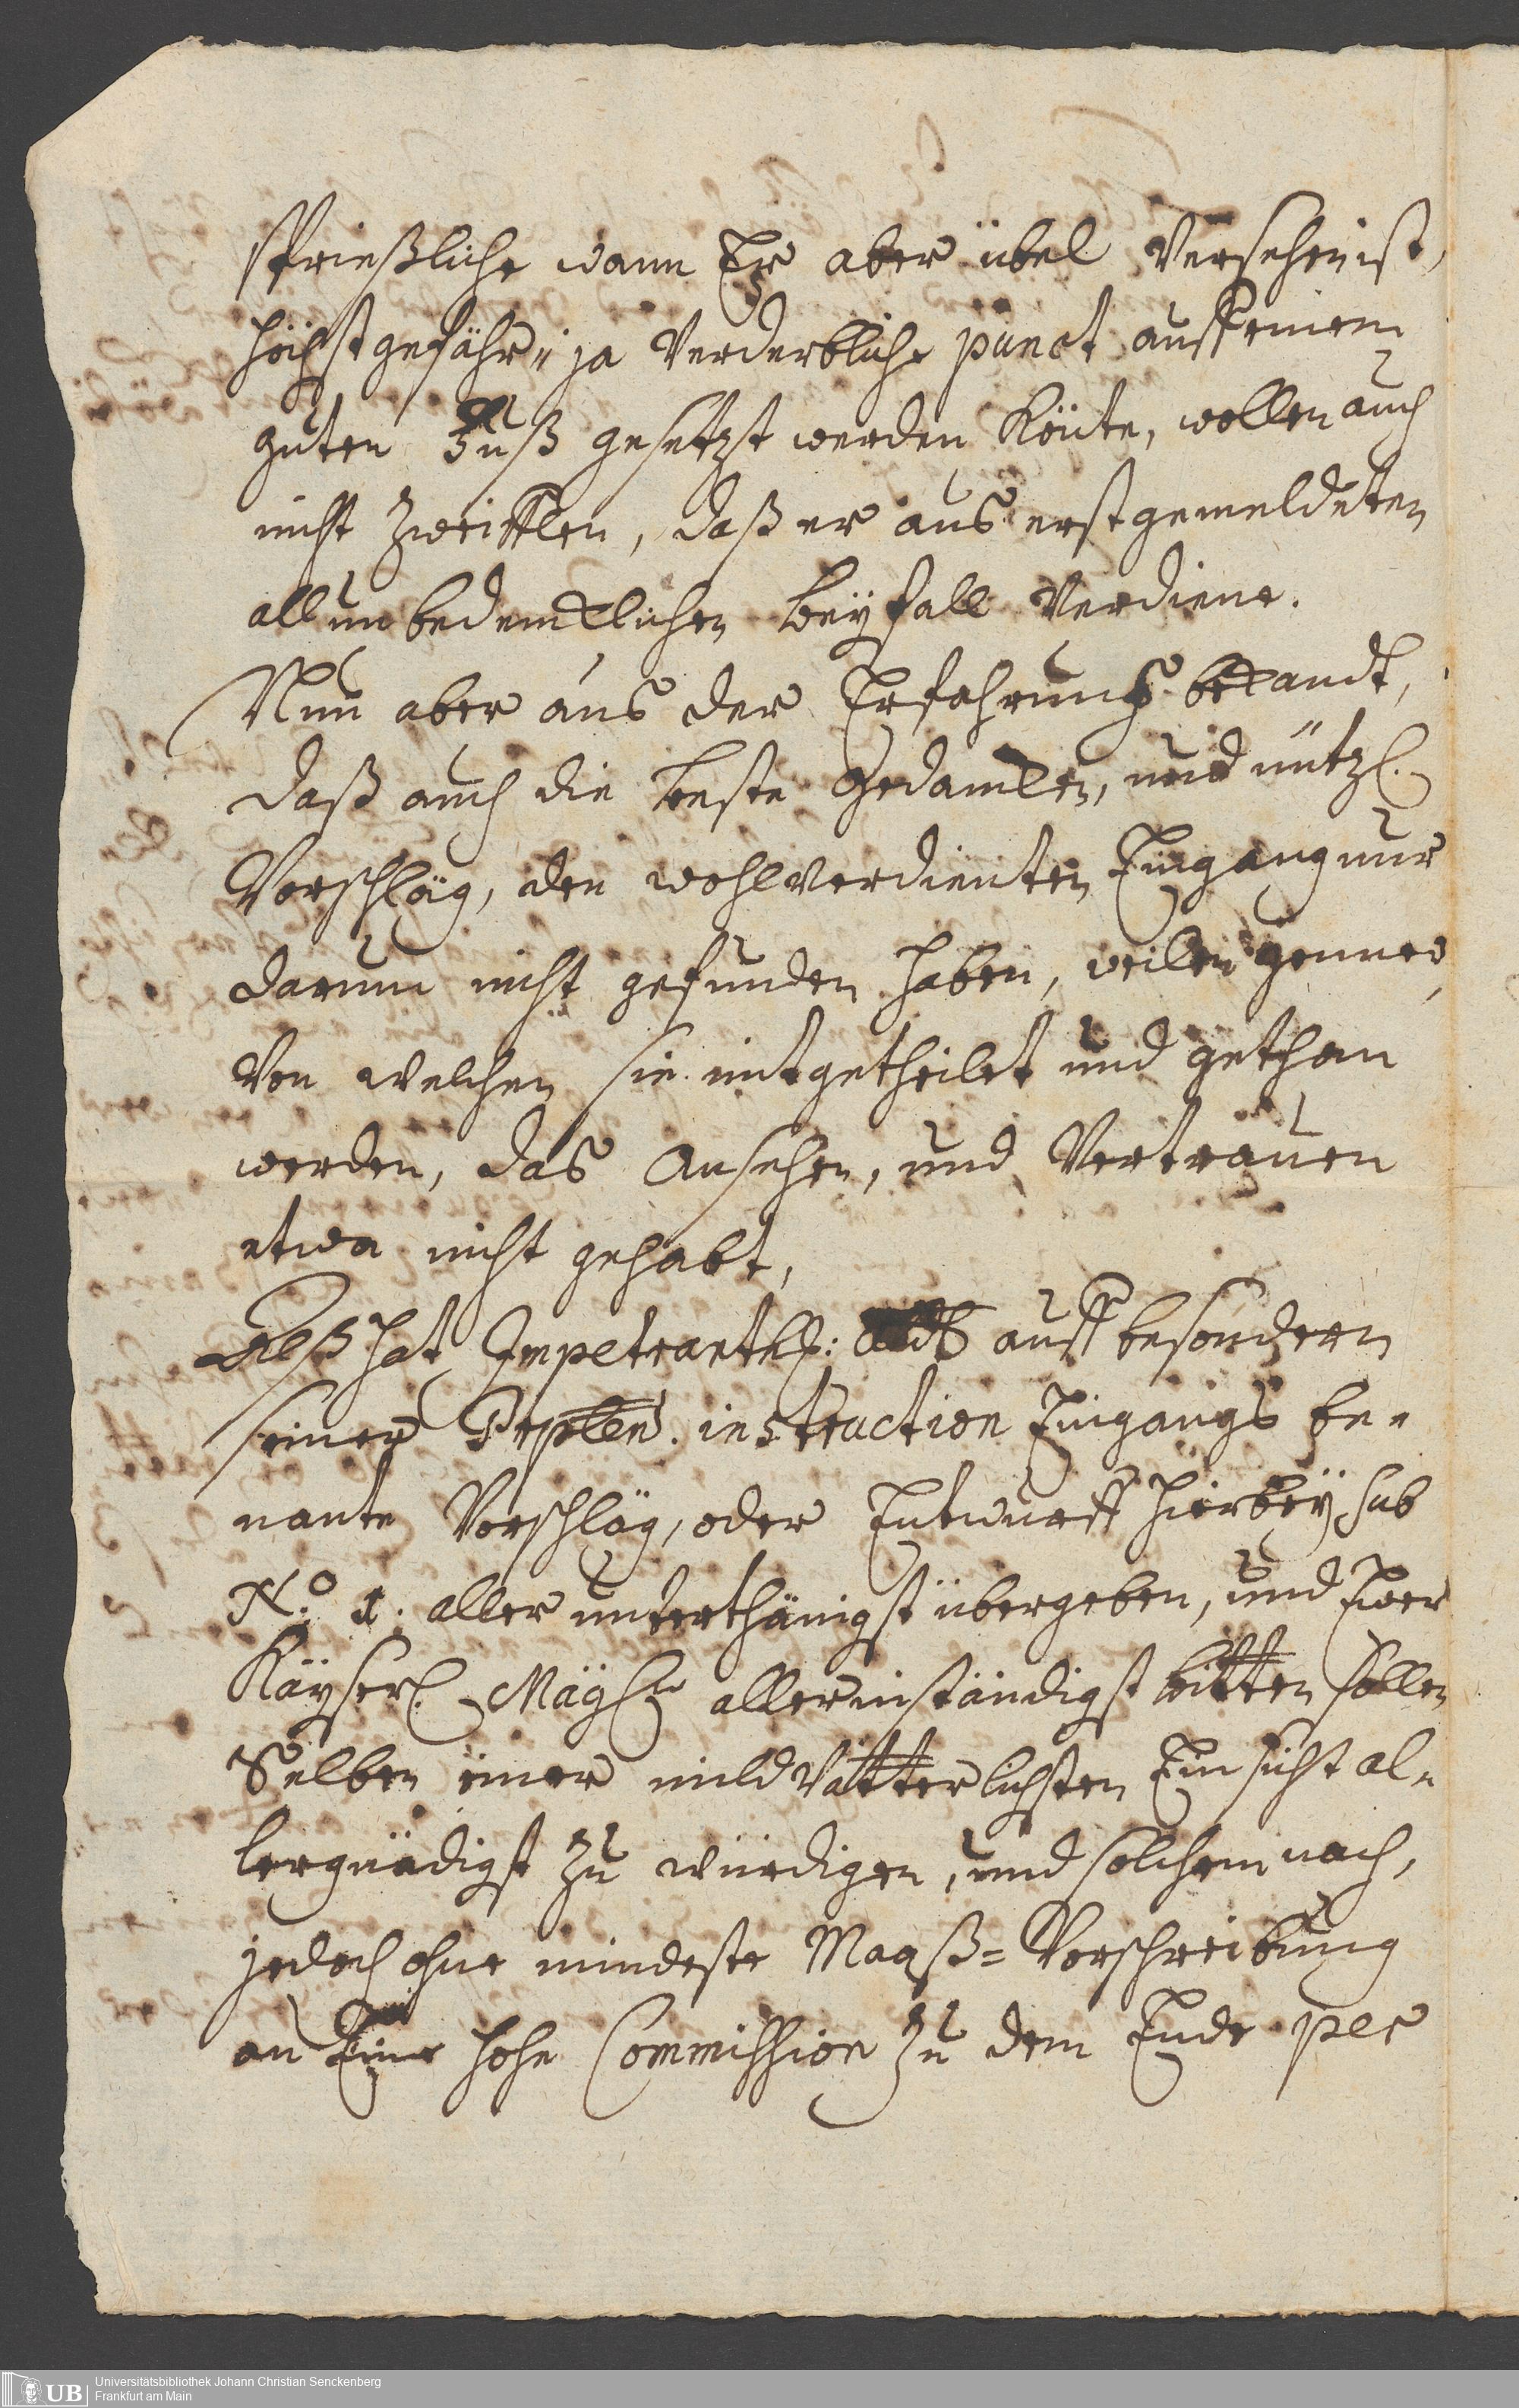 sprießliche wann Er aber übel versehen ist,
höchst gefähr- ja verderbliche punct auff einem
guten Fuß gesetzt werden könte, wollen auch
nicht zweifflen, daß er aus erstgemeldeten
all unbedencklichen beyfall verdiene.
Nun aber aus der Erfahrung bekandt,
daß auch die beste Gedancken, und nützl.
Vorschläg, den wohlverdienten Eingang nur
darum nicht gefunden haben, weilen jenner,
von welchen sie mitgetheilet und gethan
werden, das Ansehen, und Vertrauen
etwa nicht gehabt,
Alß hat Impetrant auff besondern
seiner instruction Eingangs be-
nante Vorschläg, oder Entwurff hierbey sub
N.o 1. aller unterthänigst übergeben, und Ewer
Kayserl. Mayst. allerinständigst bitten sollen
Selben einer mildvätterlichsten Einsicht al-
lergnädigst zu würdigen, und solchem nach,
jedoch ohne mindeste Maaß=Vorschreibung
an Eine hohe Commission zu dem Ende per
UB Universitätsbibliothek Johann Christian Senckenberg
Frankfurt am Main